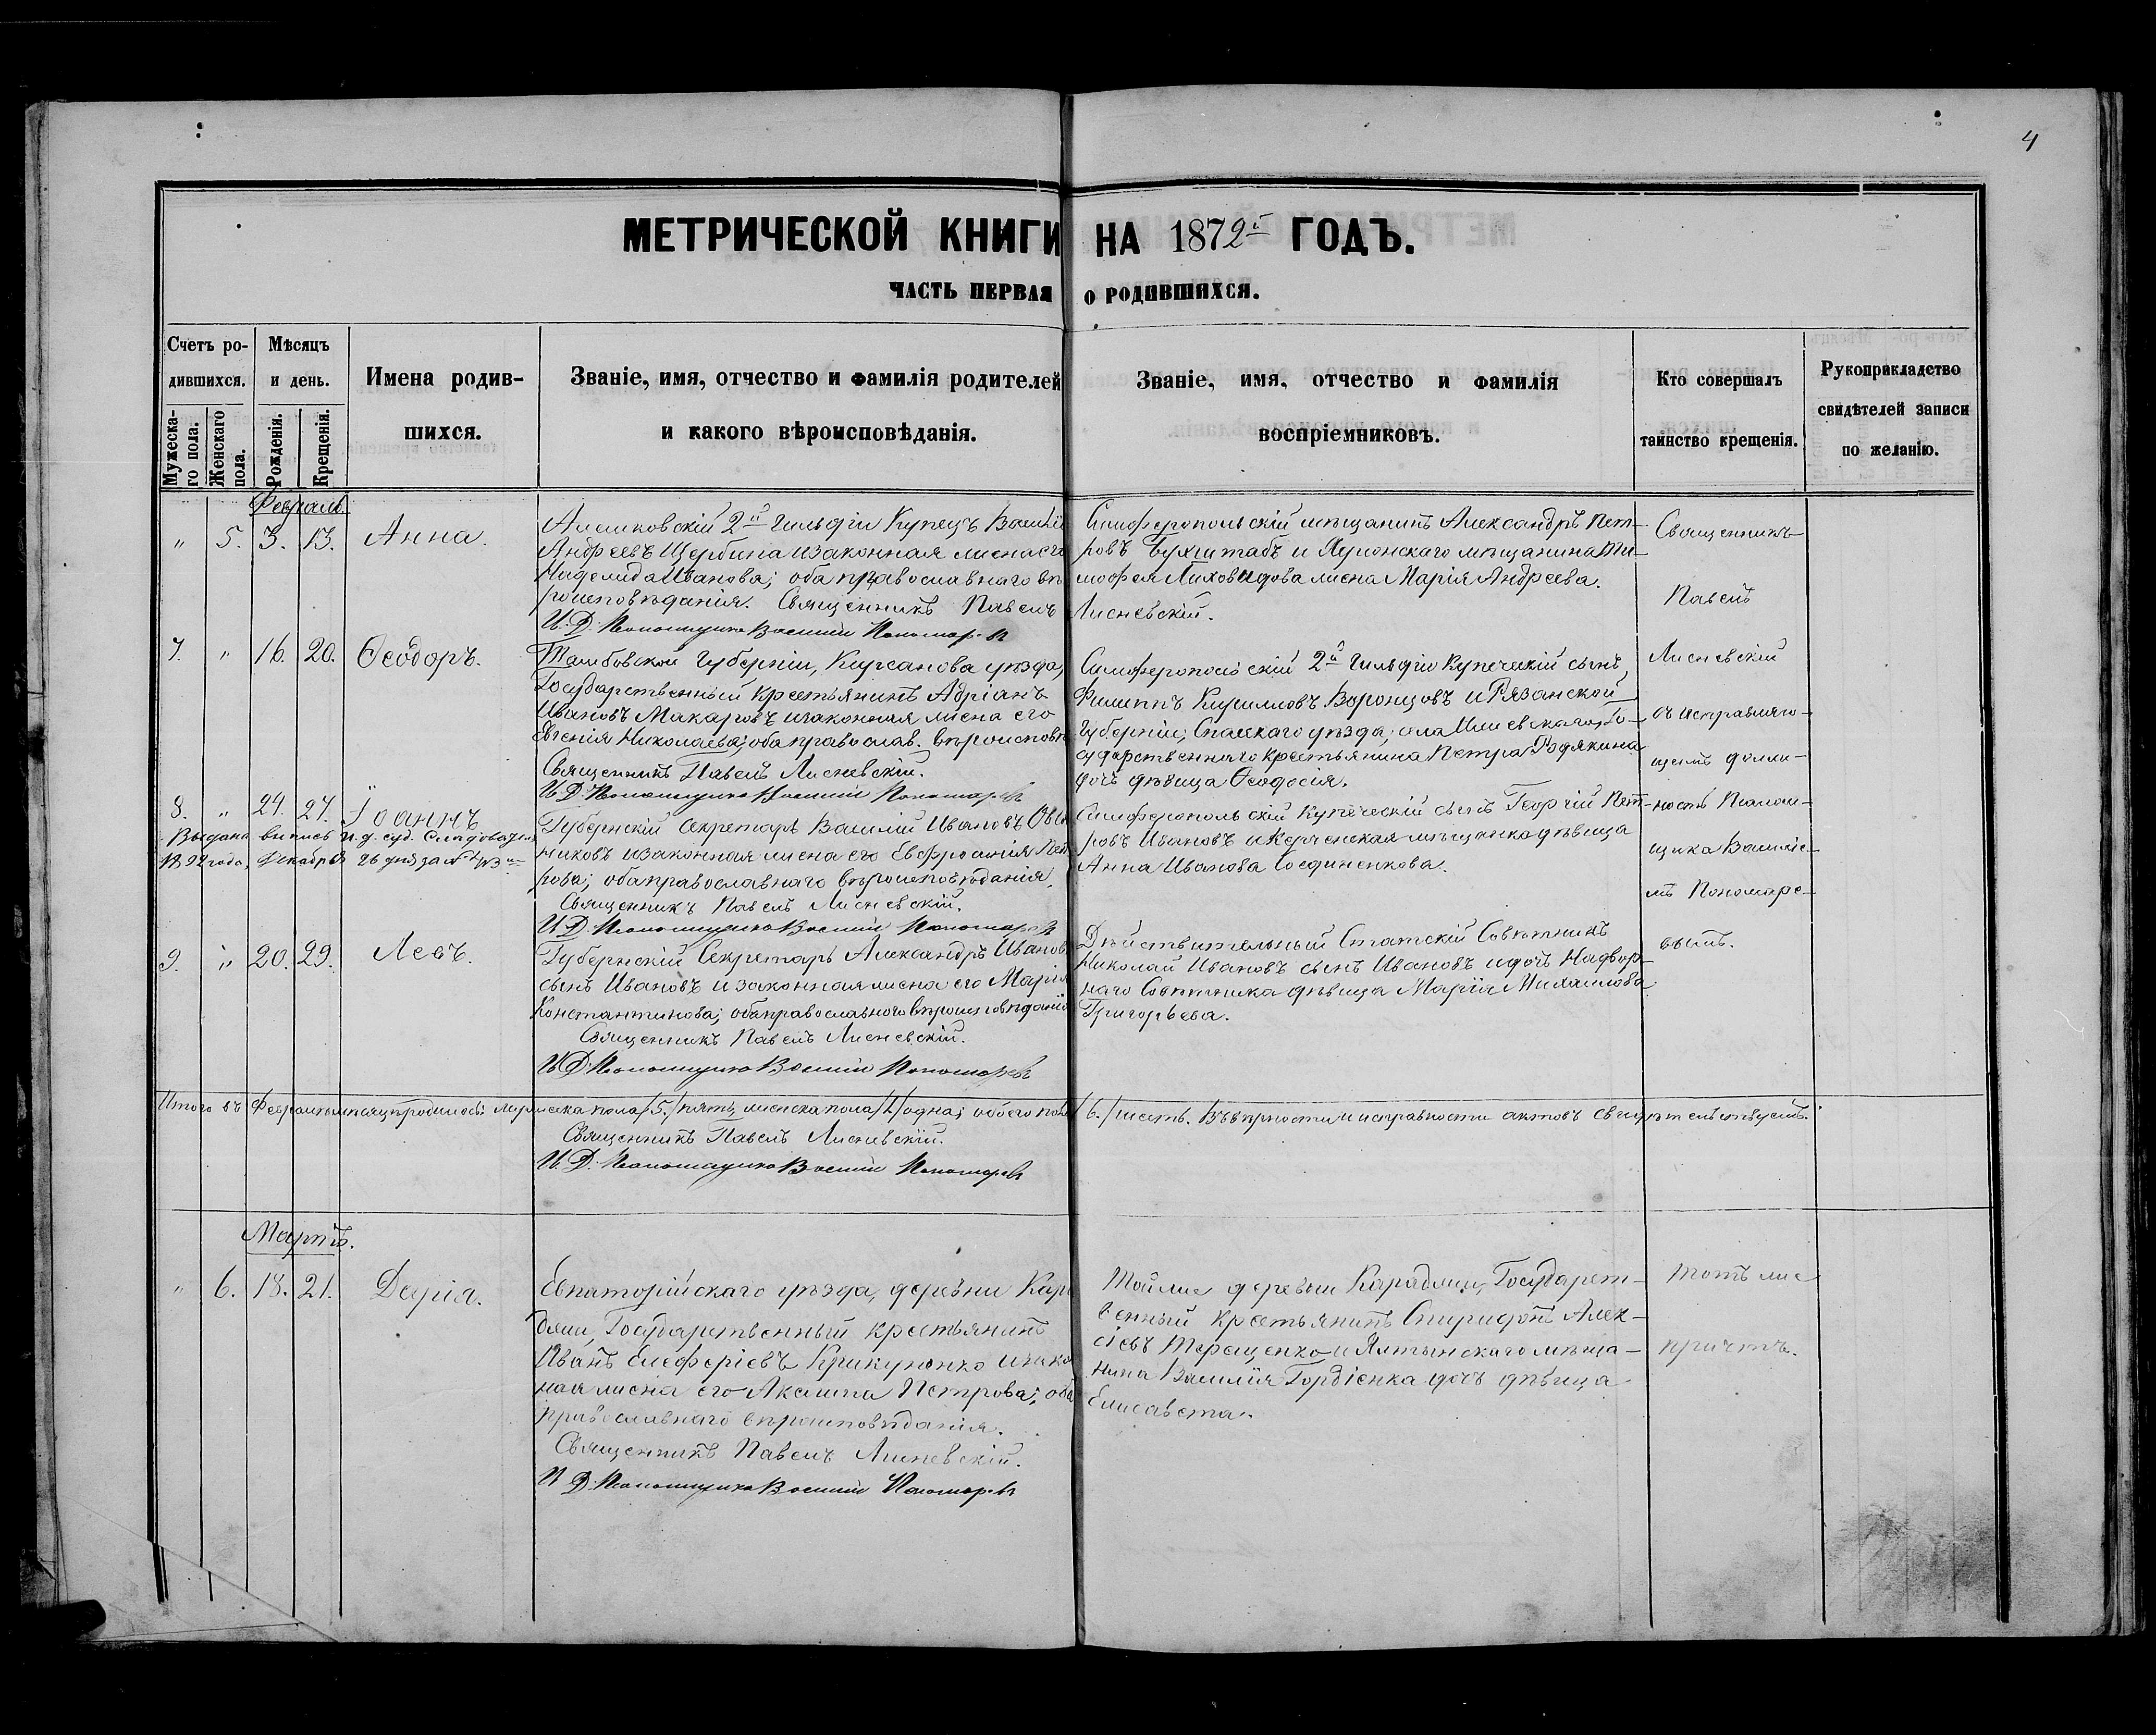 4
МЕТРИЧЕСКОЙ КНИГИ НА 1872й ГОДЪ.
ЧАСТЬ ПЕРВАЯ О РОДИВШИХСЯ.
Счетъ ро-
дившихся.
Мужеска-
го пола.
Женскаго
пола.
Мѣсяцъ
и день.
Рожденія.
Крещенія.
Имена родив-
шихся.
Званіе, имя, отчество и фамилія родителей
и какого вѣроисповѣданія.
Званіе, имя, отчество и фамилія
воспріемниковъ.
Кто совершалъ
таинство крещенія.
Рукоприкладство
свидѣтелей записи
по желанію.
Февраль.
" 5. 3. 13. Анна.
Алешковскій 2й Гильдіи Купецъ Василій
Андреевъ Щербина и законная жена его
Ивановa; оба православнаго вѣ
роисповѣданія. Священникъ Павелъ
Лисневскій.
И. Д. Псаломщика Василій Пономаревъ
Симферопольскій мѣщанинъ Александръ Пет-
ровъ Бухштабъ и мѣщанина Ти-
мофея Лиховидова жена Марія Андреева.
Священникъ
Павелъ
Лисневскій
съ исправляю-
щимъ долж-
ность Псалом-
щика Василіе-
мъ Пономаре-
вымъ.
7. " 16. 20. Ѳеодоръ.
Тамбовской Губерніи, Кирсанова уѣзда,
Государственный крестьянинъ Адріанъ
Ивановъ Макаровъ и законная жена его
Евгенія Николаева; оба православ. вѣроисповѣ
Священникъ Павелъ Лисневскій.
И. Д. Псаломщика Василій Пономаревъ
Симферопольскій 2й Гильдіи Купеческій сынъ,
Филиппъ Кирилловъ Воронцовъ и Рязанской
Губерніи, Спасскаго уѣзда, села Го-
сударственнаго крестьянина Петра Рѣдякина
дочь дѣвица Ѳеодосія.
8. " 24. 27. Іоаннъ
Выдана выпись И. д. суд. Слѣдователя
1892 года, Декабря 26 дня за №
Губернскій Секретарь Василій Ивановъ
никовъ и законная жена его Евфросинія Пет
рова; оба православнаго вѣроисповѣданія.
Священникъ Павелъ Лисневскій.
И. Д. Псаломщика Василій Пономаревъ
Симферопольскій Купеческій сынъ Георгій Пет-
ровъ Ивановъ и Керченская мѣщанка дѣвица
Анна Иванова Соединенкова.
9. " 20. 29. Левъ.
Губернскій Секретарь Александръ Иванов
сынъ Ивановъ и законная жена его Марія
Константинова; оба православнаго вѣроисповѣданія
Священникъ Павелъ Лисневскій.
И. Д. Псаломщика Василій Пономаревъ
Дѣйствительный Статскій Совѣтникъ
Николай Ивановъ сынъ Ивановъ и дочь Надвор-
наго Совѣтника дѣвица Марія Михаилова
Григорьева.
Итого въ Февралѣ мѣсяцѣ родилось: мужеска пола /5./ пять, женска пола /1/ одна; обоего пола /6./ шесть. Въ вѣрности и исправности актовъ свидѣтельствуемъ:
Священникъ Павелъ Лисневскій.
И. Д. Псаломщика Василій Пономаревъ
Мартъ.
" 6. 18. 21. Дарія.
Евпаторійскаго уѣзда, деревни Кара
джи, Государственный крестьянинъ
Иванъ Елеферіевъ Крикуненко и закон
ная жена его Акилина Петрова; оба
православнаго вѣроисповѣданія.
Священникъ Павелъ Лисневскій.
И. Д. Псаломщика Василій Пономаревъ
Той же деревни Караджи, Государст-
венный крестьянинъ Спиридонъ Алек-
сіевъ Терещенко и Ялтынскаго мѣща-
нина Василія Гордіенка дочь дѣвица
Елисавета.
Тотъ же
причтъ.